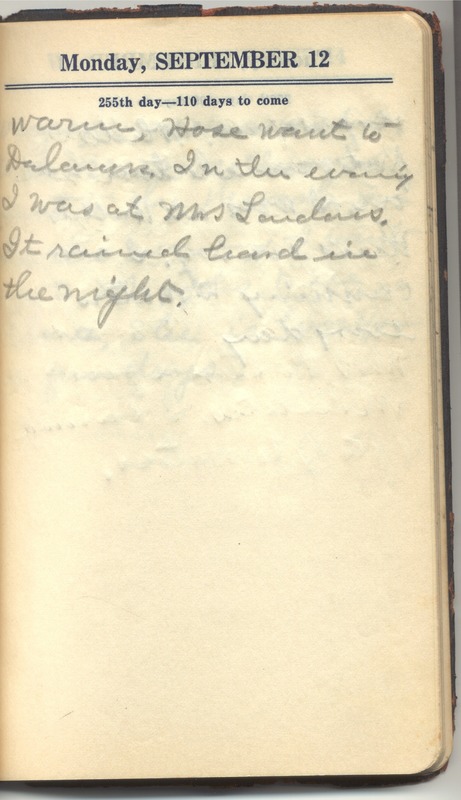 Monday, SEPTEMBER 12
255th day—110 days to come
warm, Hose want to
In the evening
I was at Mrs Landows.
It rained heard in
the night.